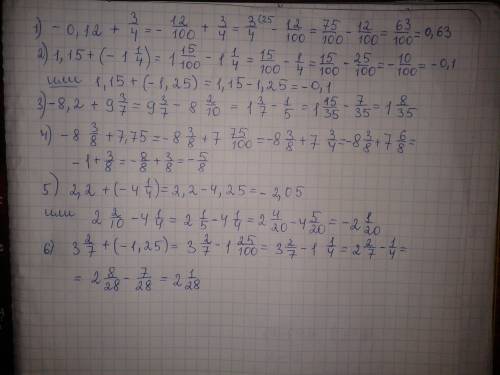 1) - 0,12 + 3/4 = - 12/100 + 3/4 = 3/4 (25 - 12/100 = 75/100 - 12/100 = 63/100 = 0,63
2) 1,15 + (-1 1/4) = 1 15/100 - 1 1/4 = 15/100 - 1/4 = 15/100 - 25/100 = - 10/100 = -0,1
или 1,15 + (-1,25) = 1,15 - 1,25 = -0,1
3) -8,2 + 9 3/7 = 9 3/7 - 8 2/10 = 1 3/7 - 1/5 = 1 15/35 - 7/35 = 1 8/35
4) -8 3/8 + 7,75 = -8 3/8 + 7 75/100 = -8 3/8 + 7 3/4 = -8 3/8 + 7 6/8 =
-1 + 3/8 = - 8/8 + 3/8 = - 5/8
5) 2,2 + (-4 1/4) = 2,2 - 4,25 = -2,05
или 2 2/10 - 4 1/4 = 2 1/5 - 4 1/4 = 2 4/20 - 4 5/20 = -2 1/20
6) 3 2/7 + (-1,25) = 3 2/7 - 1 25/100 = 3 2/7 - 1 1/4 = 2 2/7 - 1/4 =
= 2 8/28 - 7/28 = 2 1/28